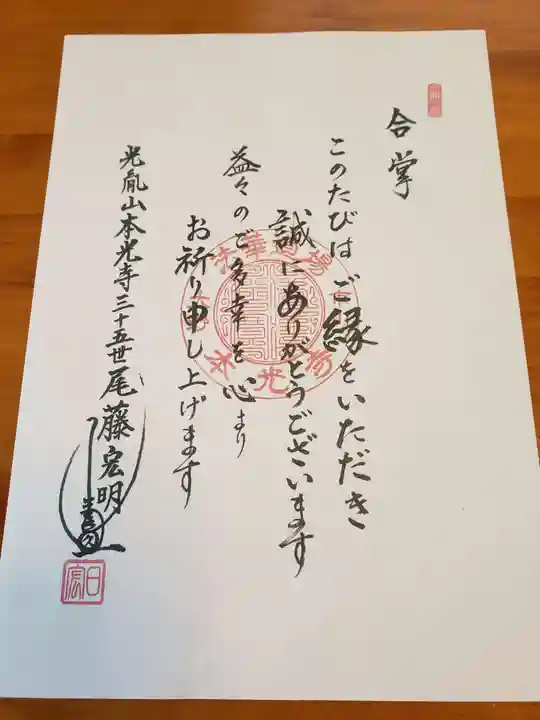 合掌
このたびはご縁をいただき
誠にありがとうございます
益々のご多幸を心より
お祈り申し上げます
光胤山本光寺三十五世尾藤宏明
法華道場
本光寺